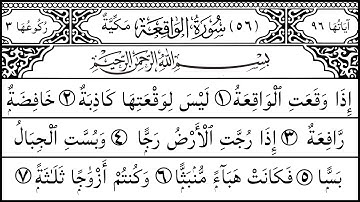 اٰيَاتُهَا ٩٦ (٥٦) سُوْرَةُ الْوَاقِعَةِ مَكِّيَّةٌ رُكُوْعُهَا ٣
بِسْمِ اللهِ الرَّحْمٰنِ الرَّحِيْمِ
إِذَا وَقَعَتِ ٱلْوَاقِعَةُ ١ لَيْسَ لِوَقْعَتِهَا كَاذِبَةٌ ٢ خَافِضَةٌ
رَّافِعَةٌ ٣ إِذَا رُجَّتِ ٱلْأَرْضُ رَجًّا ٤ وَبُسَّتِ ٱلْجِبَالُ
بَسًّا ٥ فَكَانَتْ هَبَآءً مُّنۢبَثًّا ٦ وَكُنتُمْ أَزْوَٰجًا ثَلَٰثَةً ٧